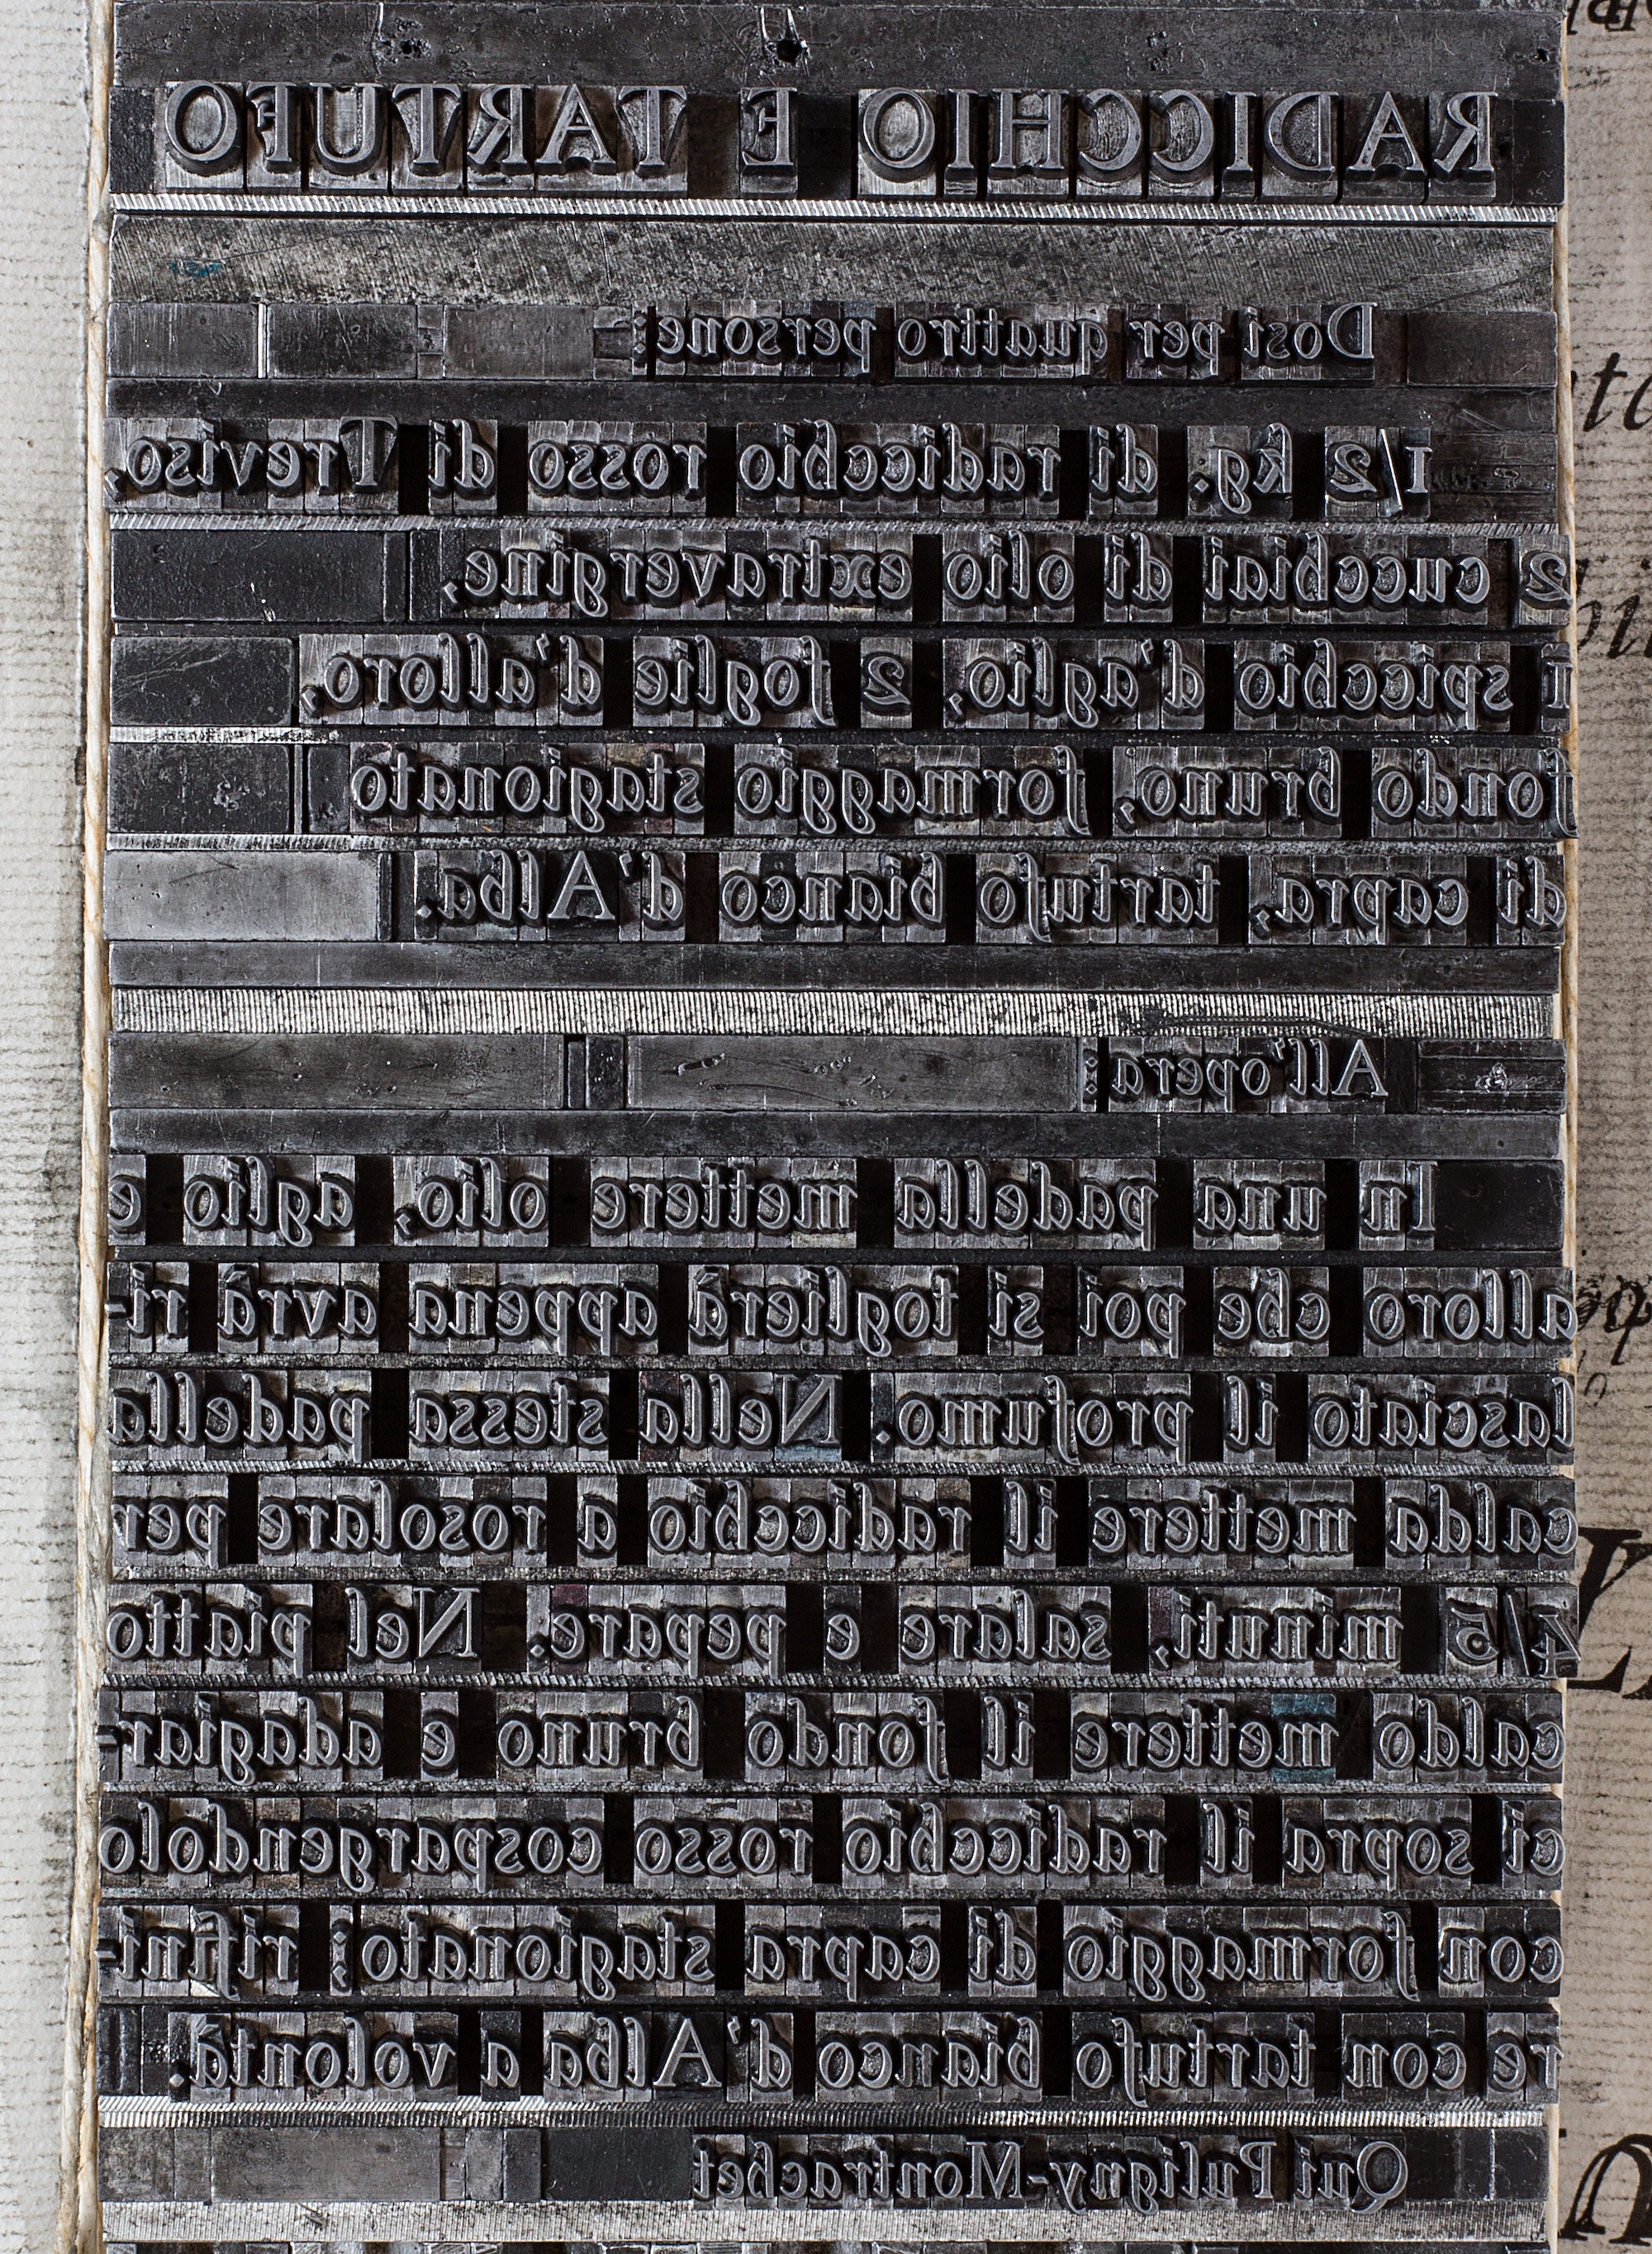 RADICCHIO E TARTUFO
Dosi per quattro persone:
1/2 kg. di radicchio rosso di Treviso,
2 cucchiai di olio extravergine,
1 spicchio d'aglio, 2 foglie d'alloro,
fondo bruno, formaggio stagionato
di capra, tartufo bianco d'Alba.
All'opera:
In una padella mettere olio, aglio e
alloro che poi si toglierà appena avrà ri-
lasciato il profumo. Nella stessa padella
calda mettere il radicchio a rosolare per
4/5 minuti, salare e pepare. Nel piatto
caldo mettere il fondo bruno e adagiar-
ci sopra il radicchio rosso cospargendolo
con formaggio di capra stagionato; rifini-
re con tartufo bianco d'Alba a volontà.
Qui Puligny-Montrachet